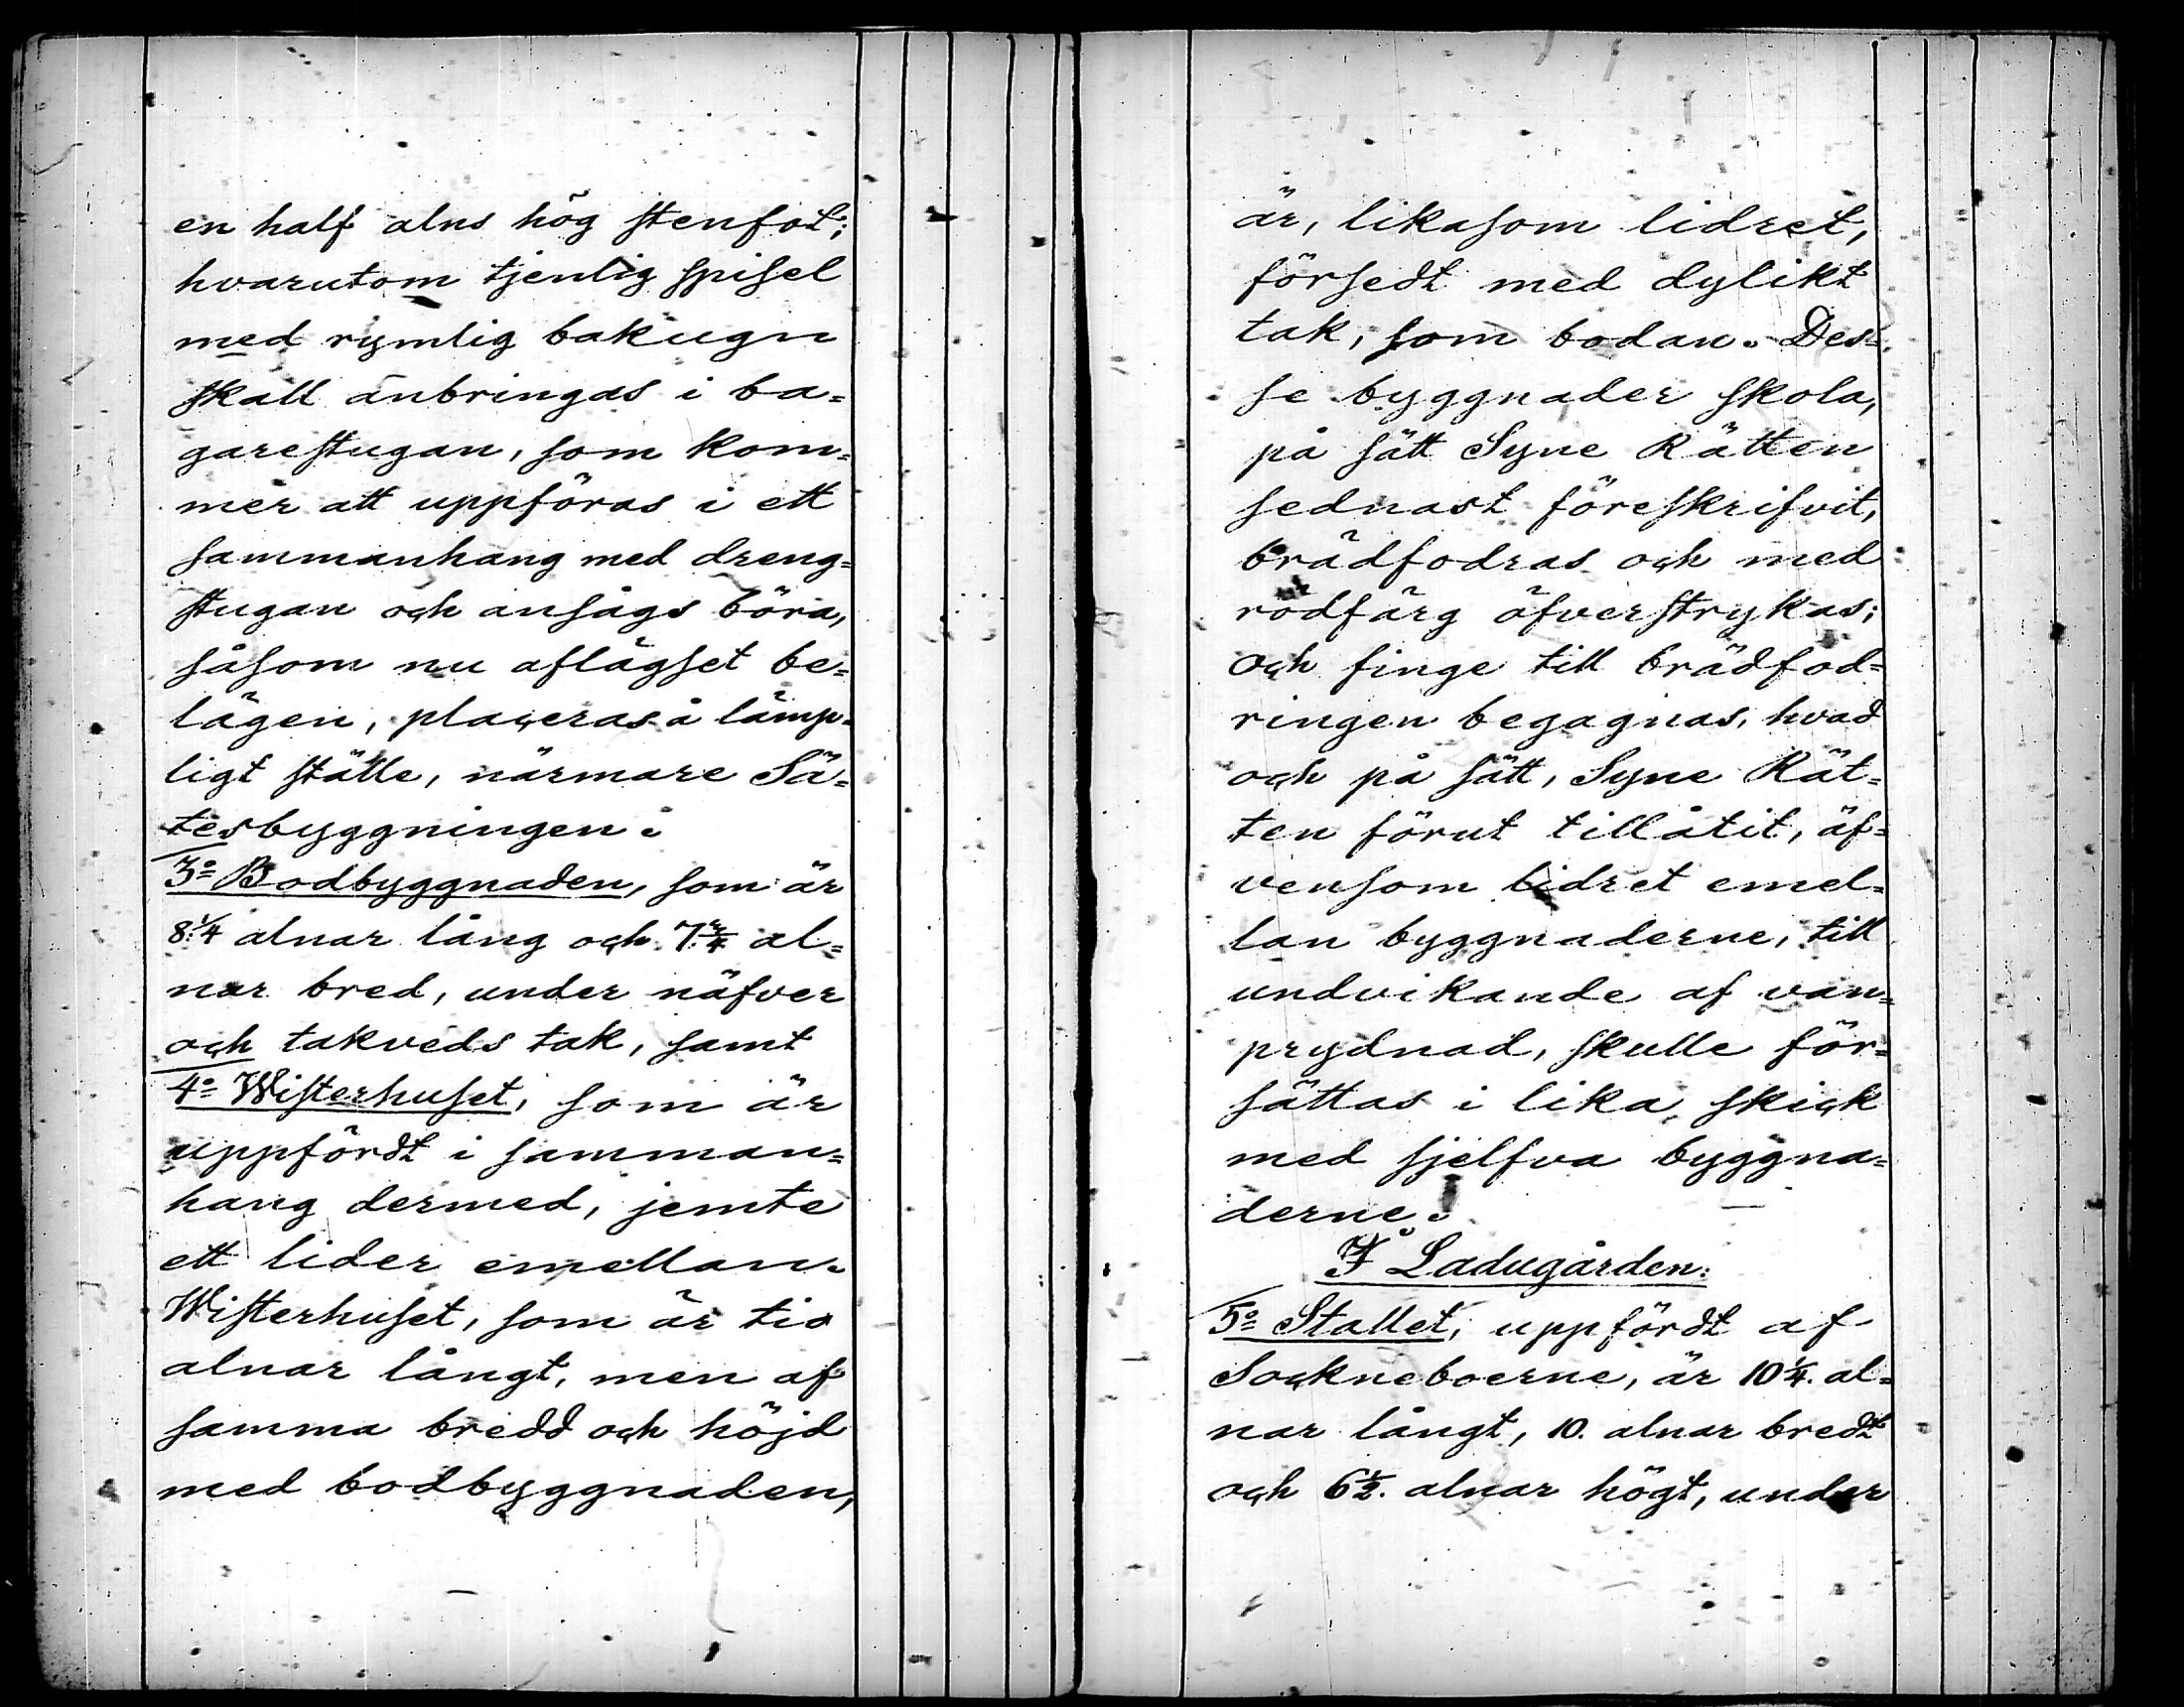 en half alns hög stenfot;
hvarutom tjenlig spisel
med rymlig bakugn
skall anbringas i ba=
garestugan, som kom=
mer att uppföras i ett
sammanhang med dreng=
stugan och ansågs böra,
såsom nu aflägset be=
lägen, placeras å lämp=
ligt ställe, närmare Sä=
tesbyggningen.
3o= Bodbyggnaden, som är
8 1/4 alnar lång och 7 3/4 al=
nar bred, under näfver
och takveds tak, samt
4o= Wisterhuset, som är
uppfördt i samman=
hang dermed, jemte
ett lider emellan.
Wisterhuset, som är tio
alnar långt, men af
samma bredd och höjd
med bodbyggnaden,
är, likasom lidret,
försedt med dylikt
tak, som bodan. Des=
se byggnader skola,
på sätt Syne Rätten
sednast föreskrifvit,
brädfodras och med
rödfärg öfverstrykas;
och finge till brädfod=
ringen begagnas, hvad
och på sätt, Syne Rät=
ten förut tillåtit, äf=
vensom lidret emel=
lan byggnaderne, till
undvikande af van=
prydnad, skulle för=
sättas i lika skick
med sjelfva byggna=
derne.
I Ladugården:
5o= Stallet, uppfördt af
Sockneboerne, är 10 1/4. al=
nar långt, 10. alnar bredt
och 6 1/2. alnar högt, under